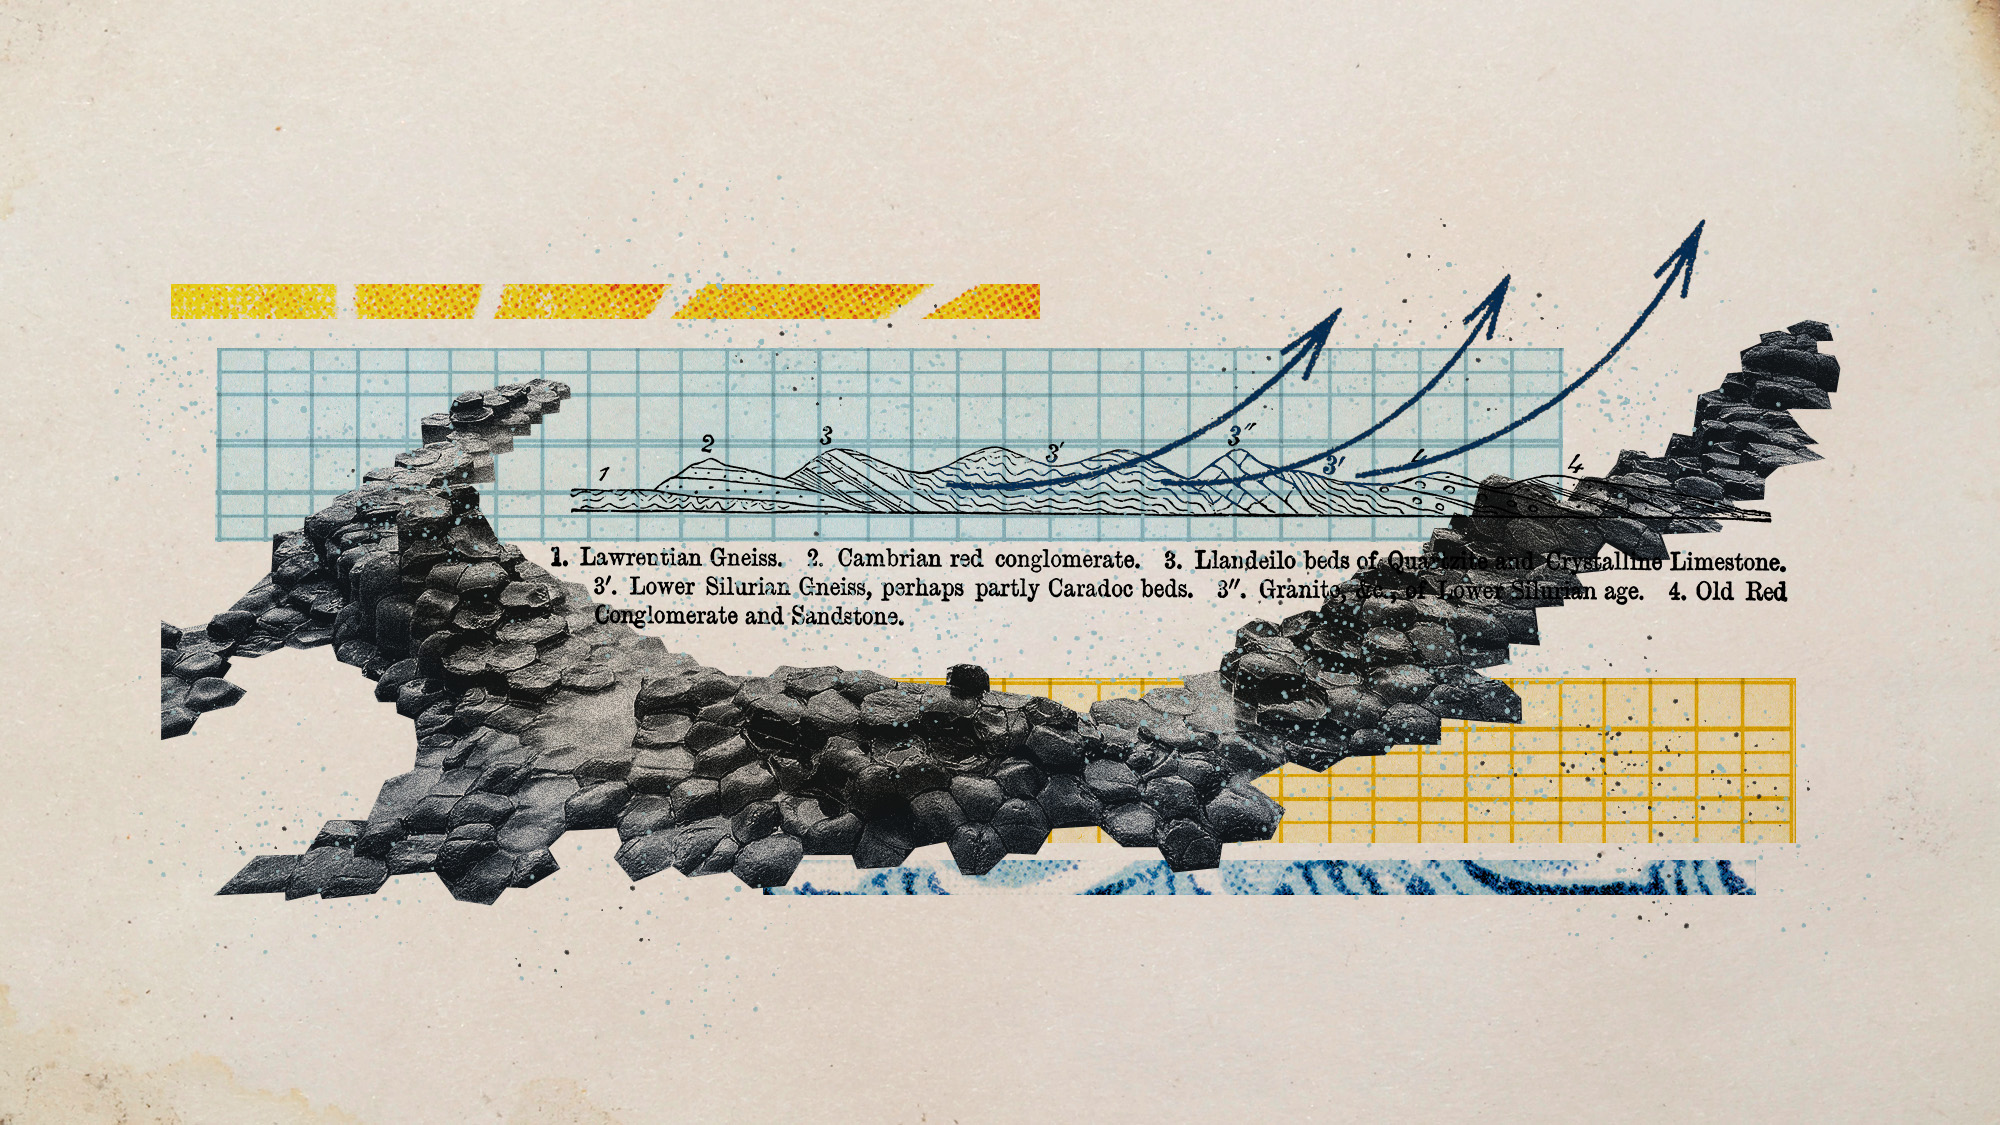 1 2 3 3′ 3″ 3′ 4 4
1. Lawrentian Gneiss. 2. Cambrian red conglomerate. 3. Llandeilo beds of Quartzite and Crystalline Limestone.
3′. Lower Silurian Gneiss, perhaps partly Caradoc beds. 3″. Granite, &c., of Lower Silurian age. 4. Old Red
Conglomerate and Sandstone.